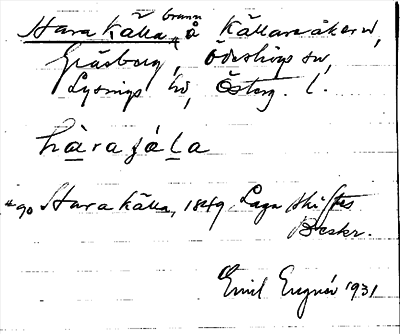 Hara Källa, brunn å Källareåkern,
Gräsberg, Ödeshögs sn,
Lysings hd, Österg. l.
hàrajála
#90 Hara Källa, 1849 Laga skiftes
Beskr.
Emil 1931